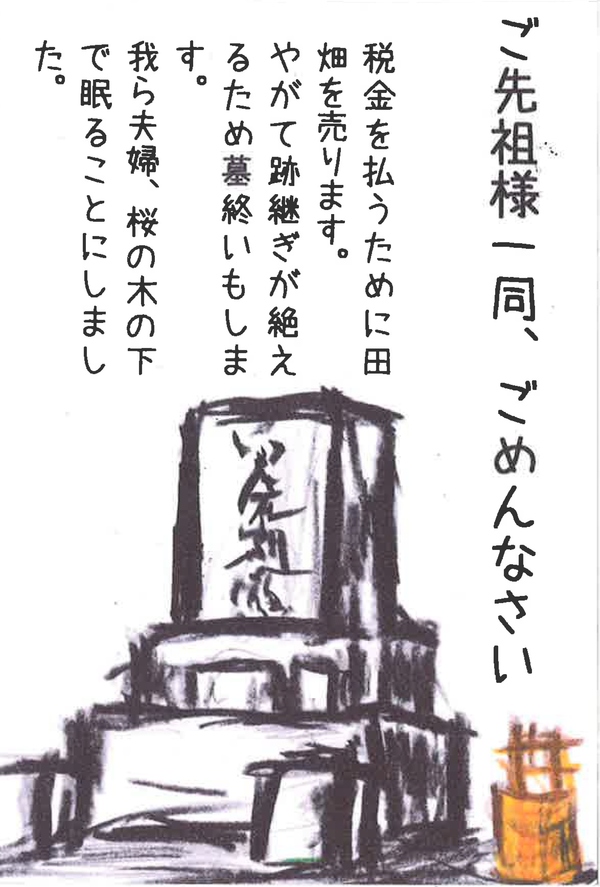 ご先祖様一同、ごめんなさい
税金を払うために田
畑を売ります。
やがて跡継ぎが絶え
るため墓終いもしま
す。
我ら夫婦、桜の木の下
で眠ることにしまし
た。